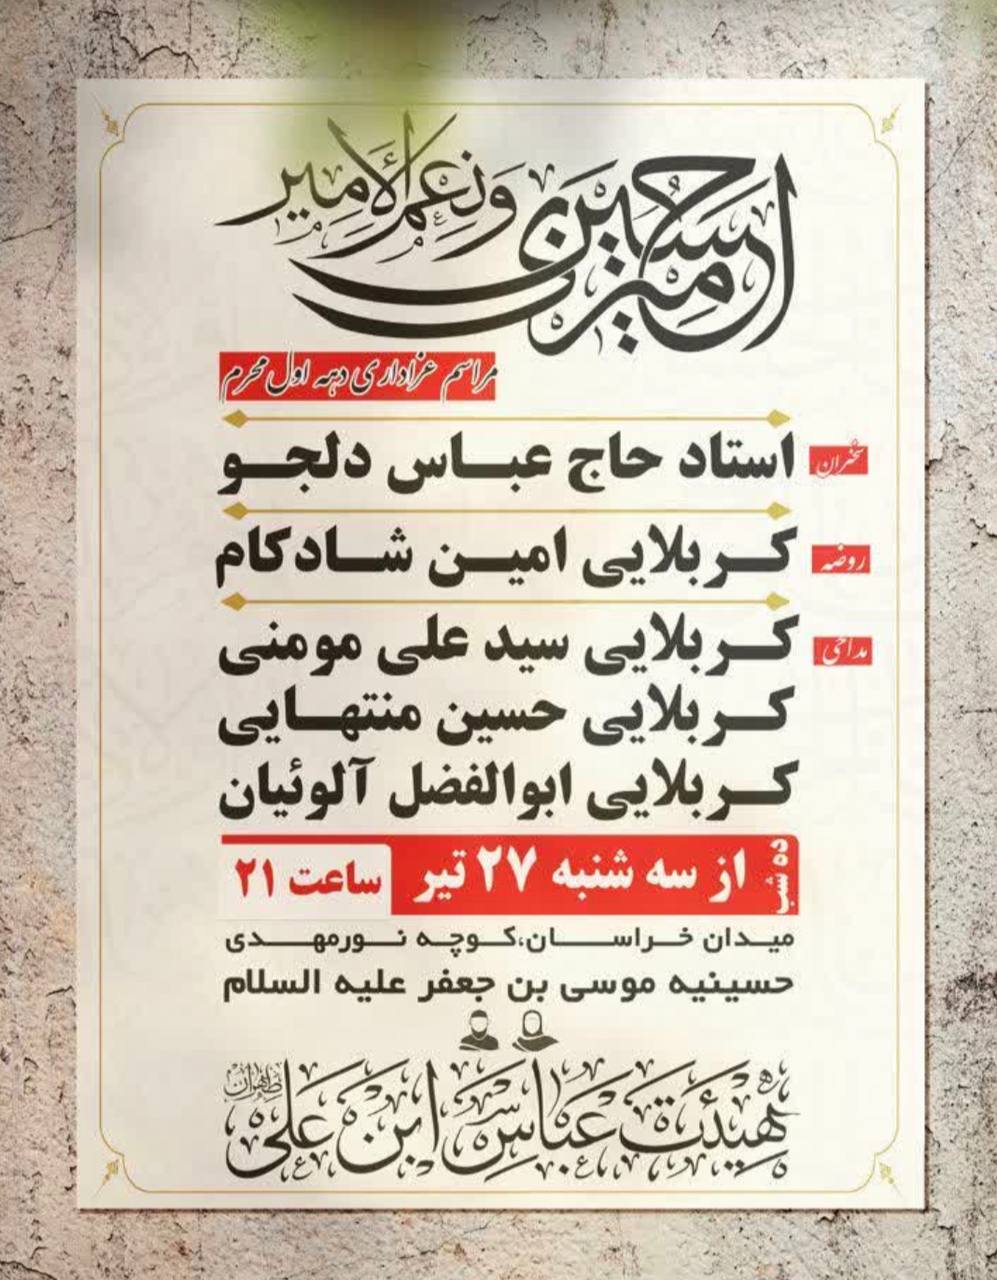 امیری حسین و نعم الأمیر
مراسم عزاداری دهه اول محرم
سخنران
استاد حاج عباس دلجو
روضه
کربلایی امین شادکام
مداحی
کربلایی سید علی مومنی
کربلایی حسین منتهایی
کربلایی ابوالفضل آلوئیان
ده شب
از سه شنبه ۲۷ تیر
ساعت ۲۱
میدان خراسان، کوچه نورمهدی
حسینیه موسی بن جعفر علیه السلام
هیئت عباس ابن علی
طهران